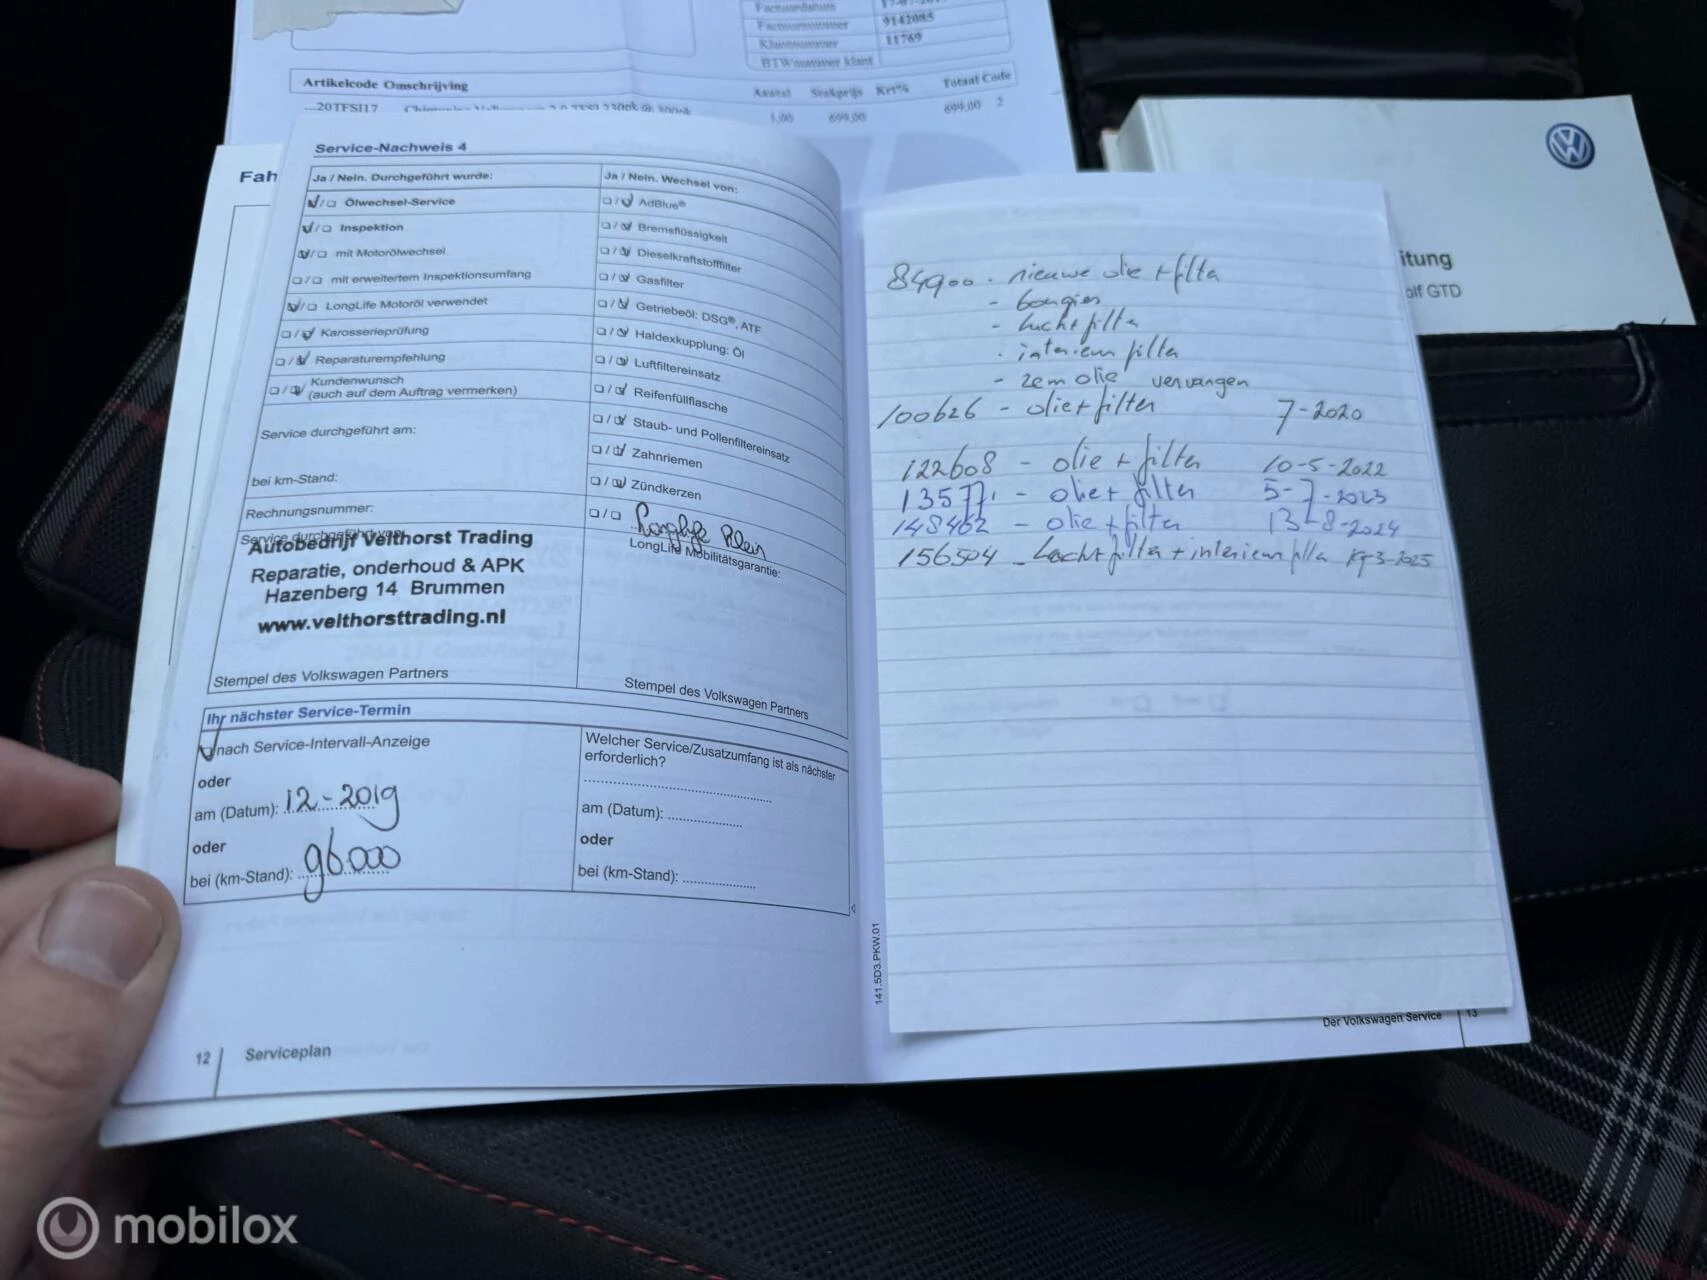 Factuurdatum
Factuurnummer 9142085
Klantnummer 11769
BTWnummer klant
Artikelcode Omschrijving Aantal Stukprijs Krt% Totaal Code
...20TFSI17 2.0 TFSI 1,00 699,00 699,00 2
Fah
Service-Nachweis 4
Ja / Nein. Durchgeführt wurde:
Ölwechsel-Service
Inspektion
mit Motorölwechsel
mit erweitertem Inspektionsumfang
LongLife Motoröl verwendet
Karosserieprüfung
Reparaturempfehlung
Kundenwunsch
(auch auf dem Auftrag vermerken)
Service durchgeführt am:
bei km-Stand:
Rechnungsnummer:
Service durchgeführt von:
Autobedrijf Velthorst Trading
Reparatie, onderhoud & APK
Hazenberg 14 Brummen
www.velthorsttrading.nl
Stempel des Volkswagen Partners
Ja / Nein. Wechsel von:
AdBlue®
Bremsflüssigkeit
Dieselkraftstofffilter
Gasfilter
Getriebeöl: DSG®, ATF
Haldexkupplung: Öl
Luftfiltereinsatz
Reifenfüllflasche
Staub- und Pollenfiltereinsatz
Zahnriemen
Zündkerzen
Longlife Klein
LongLife Mobilitätsgarantie:
Stempel des Volkswagen Partners
Ihr nächster Service-Termin
nach Service-Intervall-Anzeige
oder
am (Datum): 12-2019
oder
bei (km-Stand): 96000
Welcher Service/Zusatzumfang ist als nächster
erforderlich?
am (Datum):
oder
bei (km-Stand):
12 Serviceplan
84900 - nieuwe olie + filter
- bougies
- luchtfilter
- interieur filter
- remolie vervangen
100626 - olie + filter 7-2020
122608 - olie + filter 10-5-2022
135771 - olie + filter 5-7-2023
148462 - olie + filter 13-8-2024
156504 - luchtfilter + interieurfilter 3-2025
141.5D3.PKW.01
Der Volkswagen Service 13
VW
itung
olf GTD
mobilox